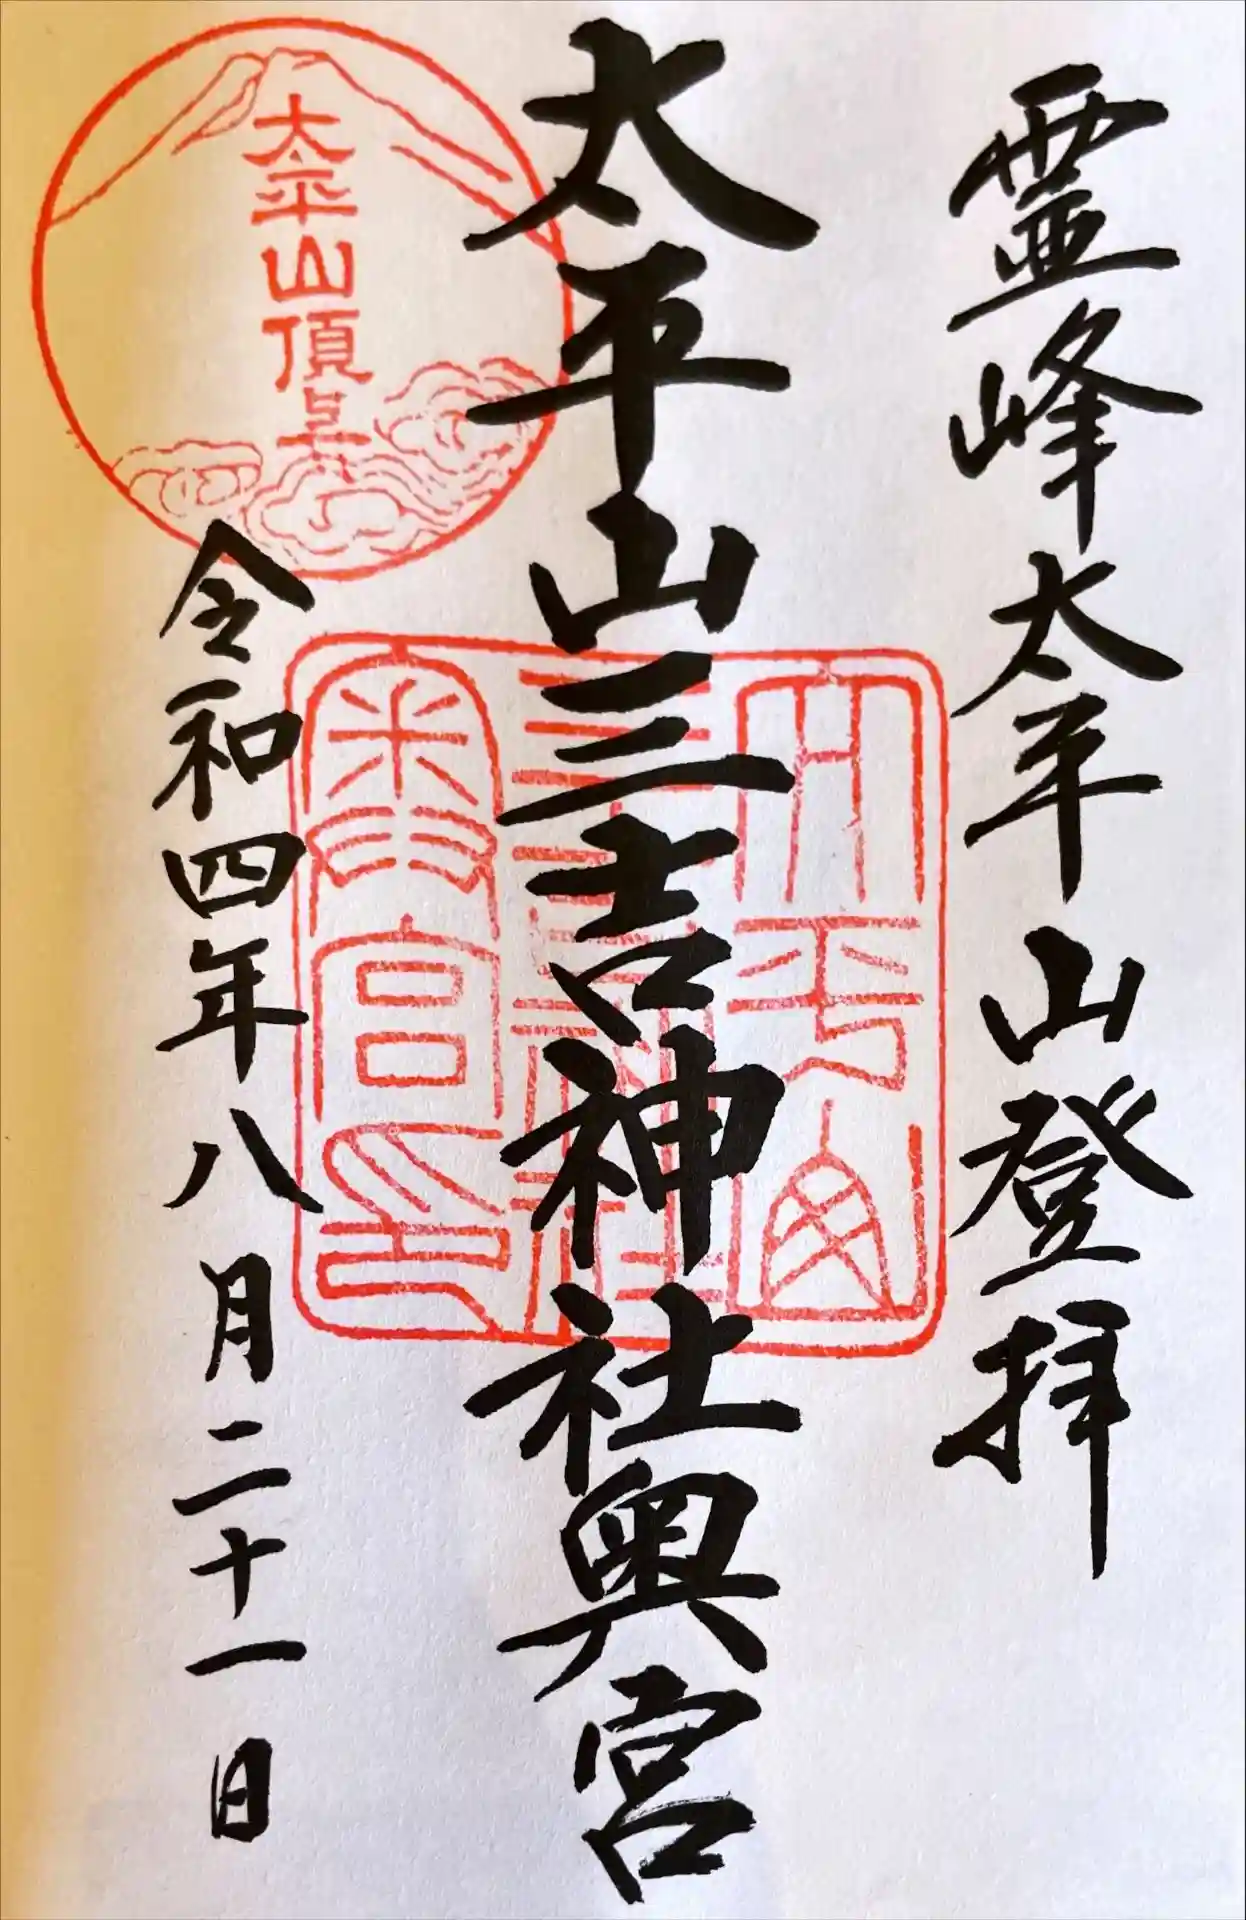 霊峰太平山登拝
太平山三吉神社奥宮
令和四年八月二十一日
太平山頂上
太平山
三吉神社
奥宮印